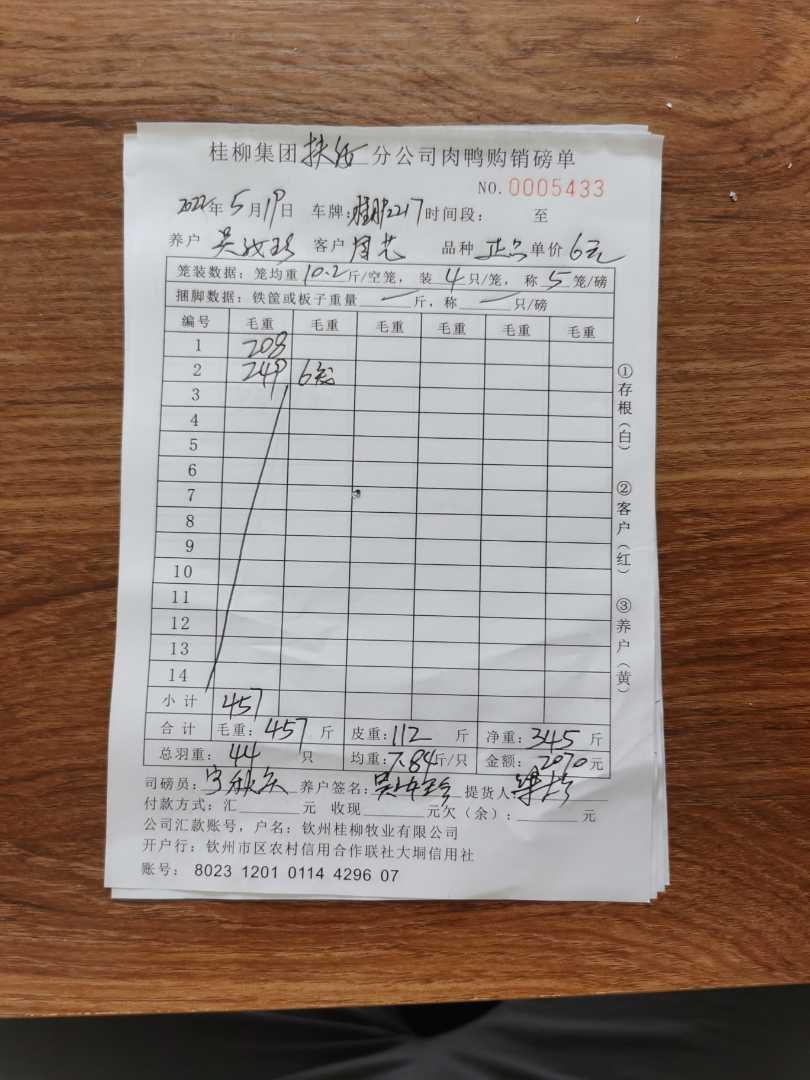 桂柳集团扶绥分公司肉鸭购销磅单
NO.0005433
2022年5月19日 车牌:桂 2217时间段: 至
养户 吴 珍 客户 周芝 品种 正品 单价 6元
笼装数据:笼均重10.2斤/空笼,装4只/笼,称5笼/磅
捆脚数据:铁筐或板子重量 — 斤,称 — 只/磅
编号 毛重 毛重 毛重 毛重 毛重 毛重
1 208
2 249 6笼
3
4
5
6
7
8
9
10
11
12
13
14
小计 457
合计 毛重:457斤 皮重:112斤 净重:345斤
总羽重:44只 均重:7.84斤/只 金额:2070元
司磅员: 养户签名:吴 珍 提货人
付款方式:汇 元 收现 元欠(余): 元
公司汇款账号,户名:钦州桂柳牧业有限公司
开户行:钦州市区农村信用合作联社大垌信用社
账号:8023 1201 0114 4296 07
①存根(白)
②客户(红)
③养户(黄)